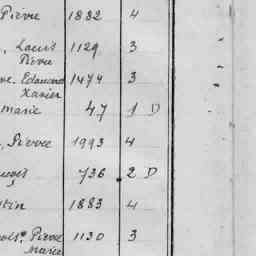 Pierre 1832 4
, Louis 1129 3
Pierre
re. Edouard 1474 3
Xavier
marie 47 1 D
, Pierre 1993 4
736 2 D
1883 4
Pierre 1130 3
Marie